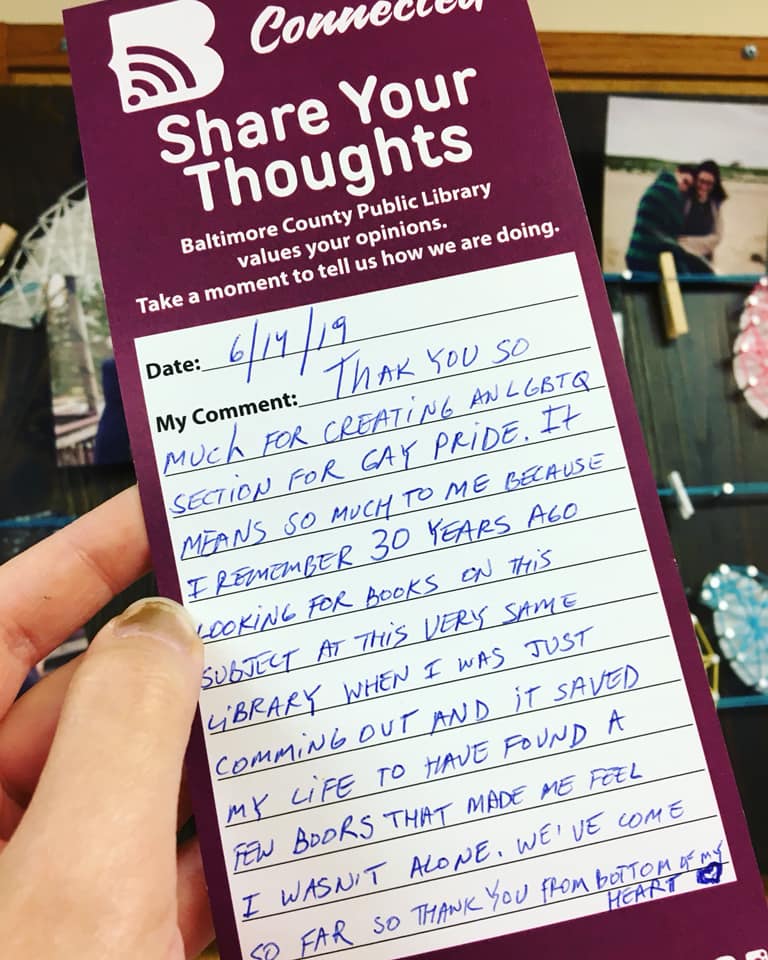 Connected
Share Your
Thoughts
Baltimore County Public Library
values your opinions.
Take a moment to tell us how we are doing.
Date: 6/14/19
My Comment: THAK YOU SO
MUCH FOR CREATING AN LGBTQ
SECTION FOR GAY PRIDE. IT
MEANS SO MUCH TO ME BECAUSE
I REMEMBER 30 YEARS AGO
LOOKING FOR BOOKS ON THIS
SUBJECT AT THIS VERY SAME
LIBRARY WHEN I WAS JUST
COMMING OUT AND IT SAVED
MY LIFE TO HAVE FOUND A
FEW BOORS THAT MADE ME FEEL
I WASN'T ALONE. WE'VE COME
SO FAR SO THANK YOU FROM BOTTOM OF MY
HEART